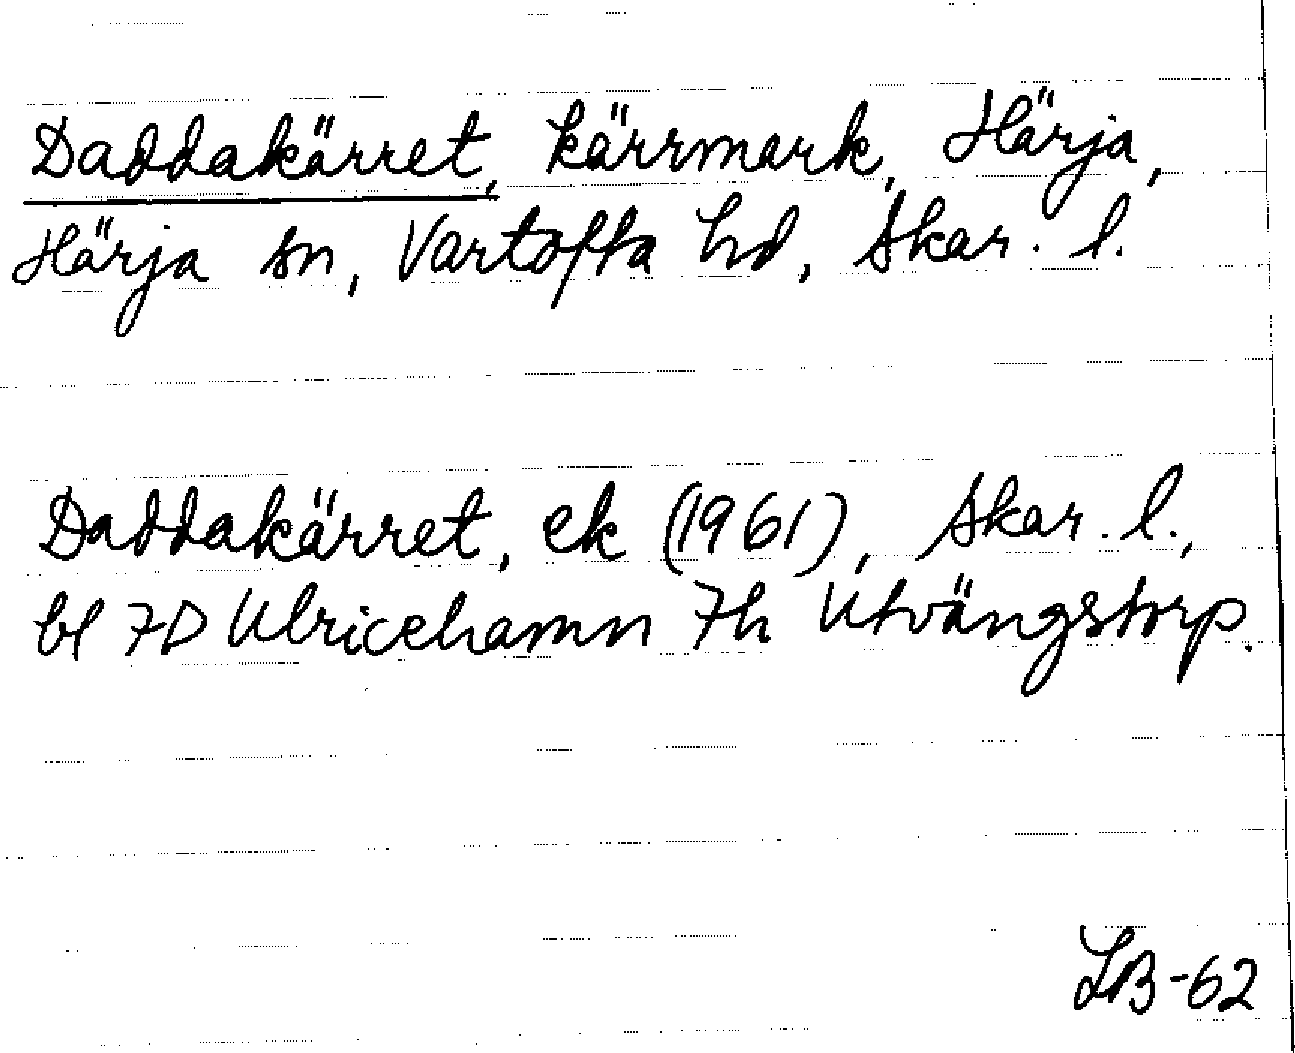 Daddakärret, kärrmark, Härja,
Härja sn, Vartofta hd, Skar. l.
Daddakärret, ek (1961), Skar. l.,
bl 7D Ulricehamn 7h Utvängstorp.
LB-62